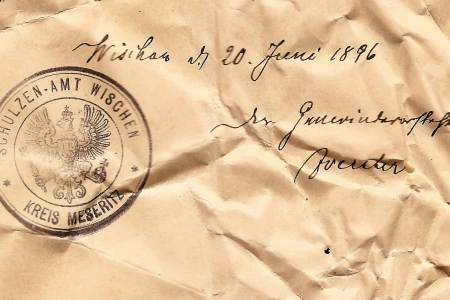 Wischen d. 20. Juni 1896
der Gemeindevorsteher
SCHULZEN-AMT WISCHEN
* KREIS MESERITZ *